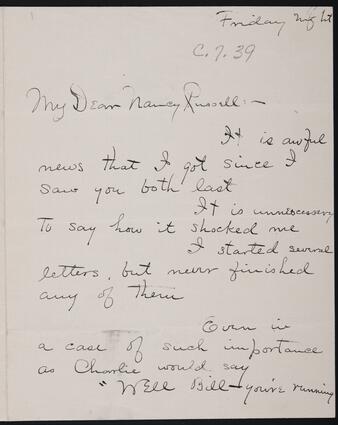 Friday night
C.7.39
My Dear Nancy Russell:—
It is awful
news that I got since I
saw you both last
It is unnecessary
To say how it shocked me
I started several
letters, but never finished
any of them
Even in
a case of such importance
as Charlie would say
"Well Bill—you're running